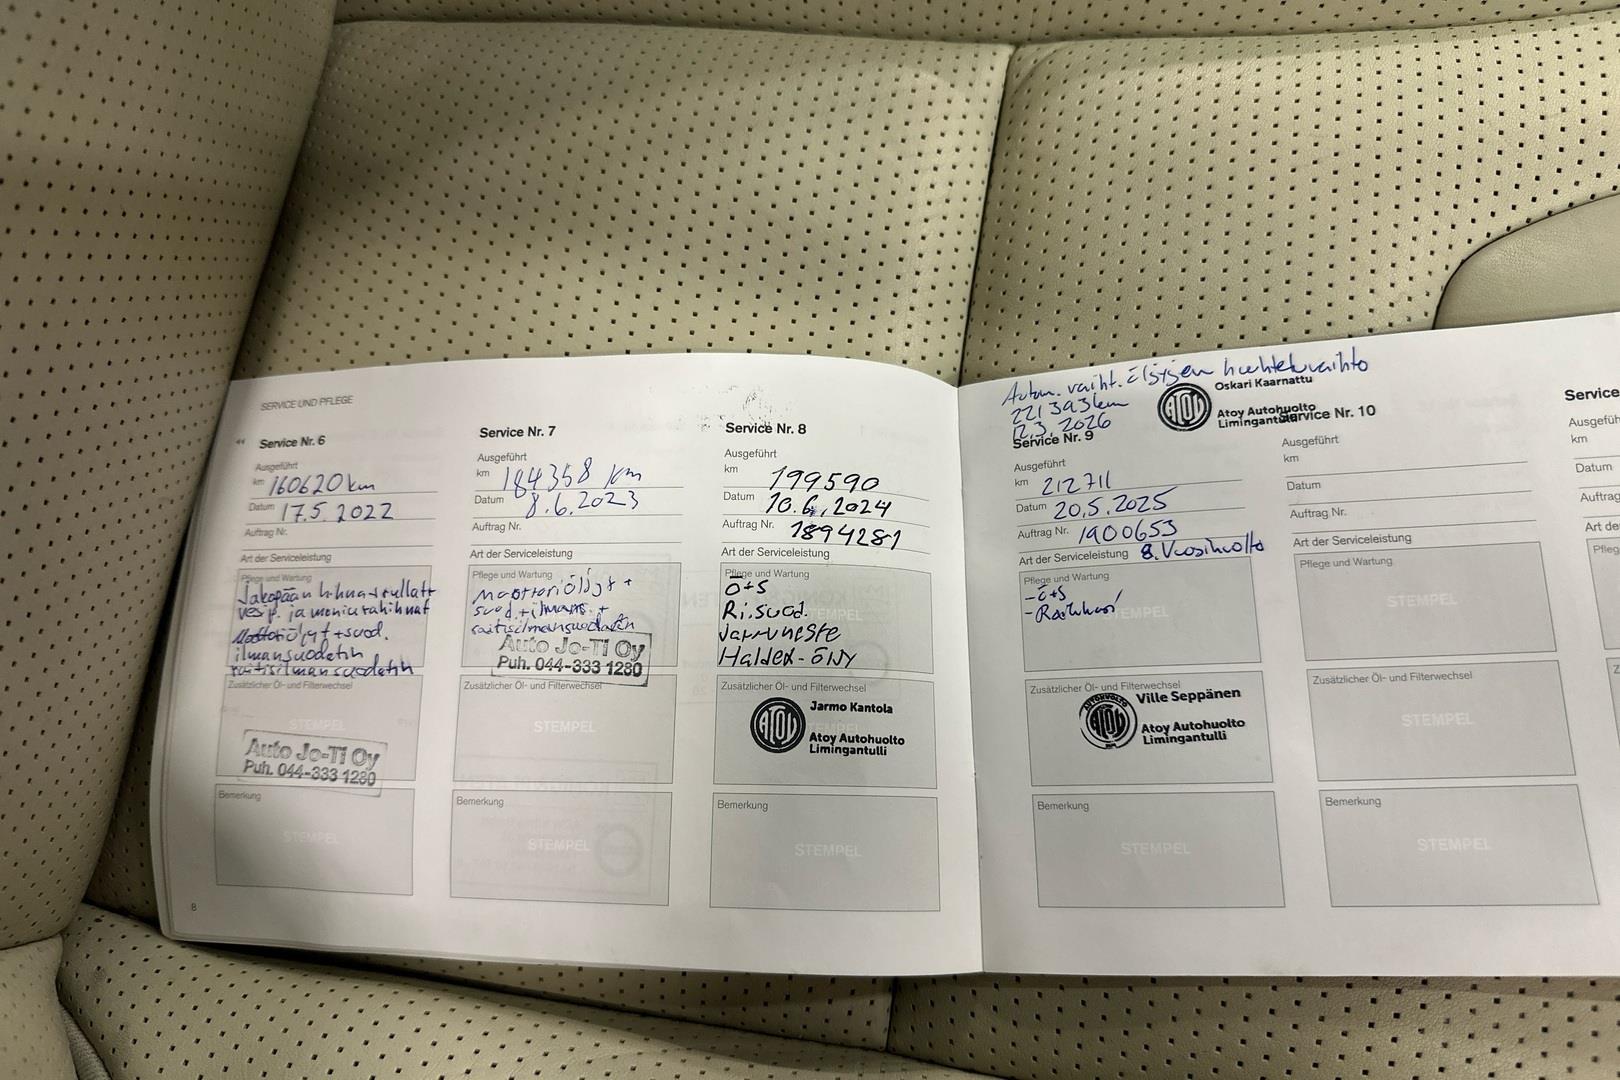 SERVICE UND PFLEGE
Service Nr. 6
Ausgeführt
km 160620 km
Datum 17.5.2022
Auftrag Nr.
Art der Serviceleistung
Pflege und Wartung
Jakopään hihna + rullat +
vesip. ja moniurahihnat
öljyt + suod.
ilmansuodatin
raitisilmansuodatin
Zusätzlicher Öl- und Filterwechsel
STEMPEL
Auto Jo-Ti Oy
Puh. 044-333 1280
Bemerkung
STEMPEL
8
Service Nr. 7
Ausgeführt
km 184358 km
Datum 8.6.2023
Auftrag Nr.
Art der Serviceleistung
Pflege und Wartung
Moottoriöljyt +
suod. + ilmans. +
raitisilmansuodatin
Auto Jo-Ti Oy
Puh. 044-333 1280
Zusätzlicher Öl- und Filterwechsel
STEMPEL
Bemerkung
STEMPEL
Service Nr. 8
Ausgeführt
km 199590
Datum 10.6.2024
Auftrag Nr. 1894281
Art der Serviceleistung
Pflege und Wartung
Ö+S
STEMPEL
Ri.suod.
Jarruneste
Haldex-ÖljY
Zusätzlicher Öl- und Filterwechsel
ATOY
Jarmo Kantola
Atoy Autohuolto
Limingantulli
Bemerkung
STEMPEL
Autom. vaiht. öljyjen huuhteluvaihto
221393 km
12.3.2026
ATOY
Oskari Kaarnattu
Atoy Autohuolto
Limingantulli
Service Nr. 9
Ausgeführt
km 212711
Datum 20.5.2025
Auftrag Nr. 1900653
Art der Serviceleistung 8. Vuosihuolto
Pflege und Wartung
- Ö+S
Zusätzlicher Öl- und Filterwechsel
AUTOHUOLTO
ATOY
Ville Seppänen
Atoy Autohuolto
Limingantulli
Bemerkung
STEMPEL
Service Nr. 10
Ausgeführt
km
Datum
Auftrag Nr.
Art der Serviceleistung
Pflege und Wartung
STEMPEL
Zusätzlicher Öl- und Filterwechsel
STEMPEL
Bemerkung
STEMPEL
Service
Ausgefüh
km
Datum
Auftrag
Art de
Pfleg